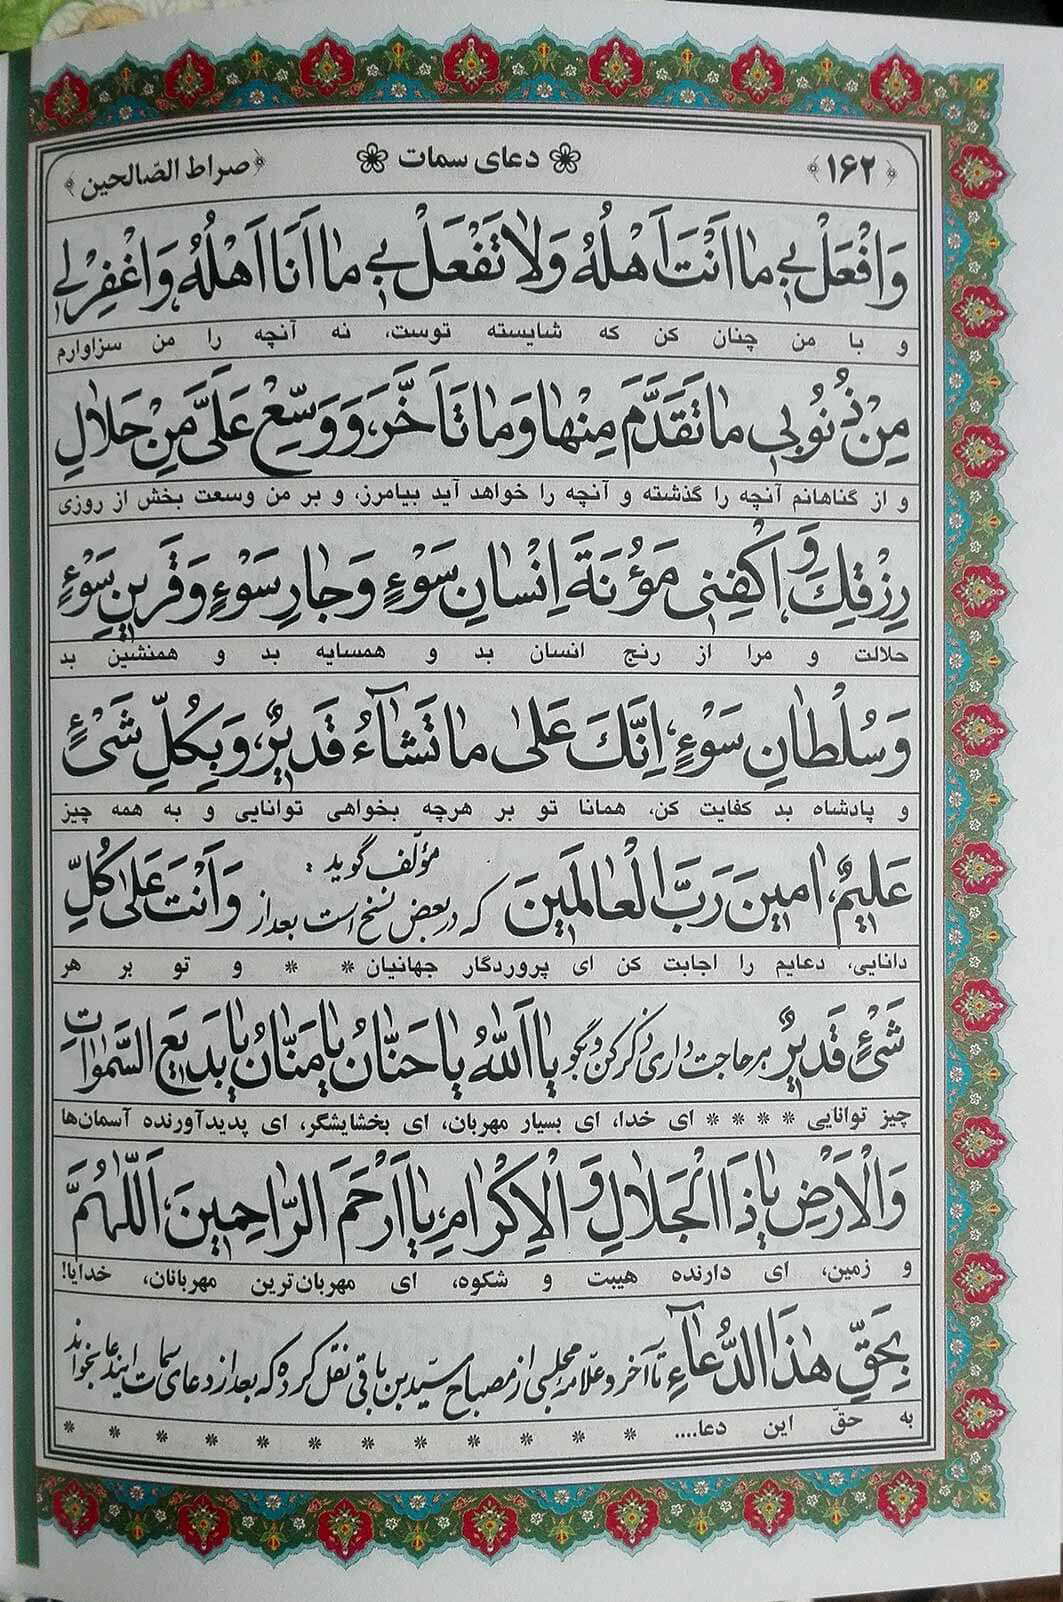 ﴿۱۶۲﴾ دعای سمات ﴿صراط الصّالحین﴾
وَافْعَلْ بِي مَا اَنْتَ اَهْلُهُ وَلَا تَفْعَلْ بِي مَا اَنَا اَهْلُهُ وَاغْفِرْ لِي
و با من چنان کن که شایسته توست، نه آنچه را من سزاوارم
مِنْ ذُنُوبِي مَا تَقَدَّمَ مِنْهَا وَمَا تَاَخَّرَ، وَوَسِّعْ عَلَيَّ مِنْ حَلَالِ
و از گناهانم آنچه را گذشته و آنچه را خواهد آید بیامرز، و بر من وسعت بخش از روزی
رِزْقِكَ، وَاكْفِنِي مَؤُنَةَ اِنْسَانِ سَوْءٍ وَجَارِ سَوْءٍ وَقَرِينِ سَوْءٍ
حلالت و مرا از رنج انسان بد و همسایه بد و همنشین بد
وَسُلْطَانِ سَوْءٍ، اِنَّكَ عَلىٰ مَا تَشَآءُ قَدِيرٌ، وَبِكُلِّ شَيْءٍ
و پادشاه بد کفایت کن، همانا تو بر هرچه بخواهی توانایی و به همه چیز
عَلِيمٌ، اٰمِينَ رَبَّ الْعَالَمِينَ مؤلّف گوید: که در بعض نسخ است بعد از وَاَنْتَ عَلىٰ كُلِّ
دانایی، دعایم را اجابت کن ای پروردگار جهانیان * * و تو بر هر
شَيْءٍ قَدِيرٌ هر حاجت داری ذکر کن و بگو يَا اَللّٰهُ يَا حَنَّانُ يَا مَنَّانُ يَا بَدِيعَ السَّمٰوَاتِ
چیز توانایی * * * * ای خدا، ای بسیار مهربان، ای بخشایشگر، ای پدیدآورنده آسمان‌ها
وَالْاَرْضِ يَا ذَا الْجَلَالِ وَالْاِكْرَامِ، يَا اَرْحَمَ الرَّاحِمِينَ، اَللّٰهُمَّ
و زمین، ای دارنده هیبت و شکوه، ای مهربان‌ترین مهربانان، خدایا!
بِحَقِّ هٰذَا الدُّعَآءِ تا آخر و علّامه مجلسی از مصباح سیّد بن باقی نقل کرده که بعد از دعای سمات این دعا بخواند
به حقّ این دعا.... * * * * * * * * * * * *